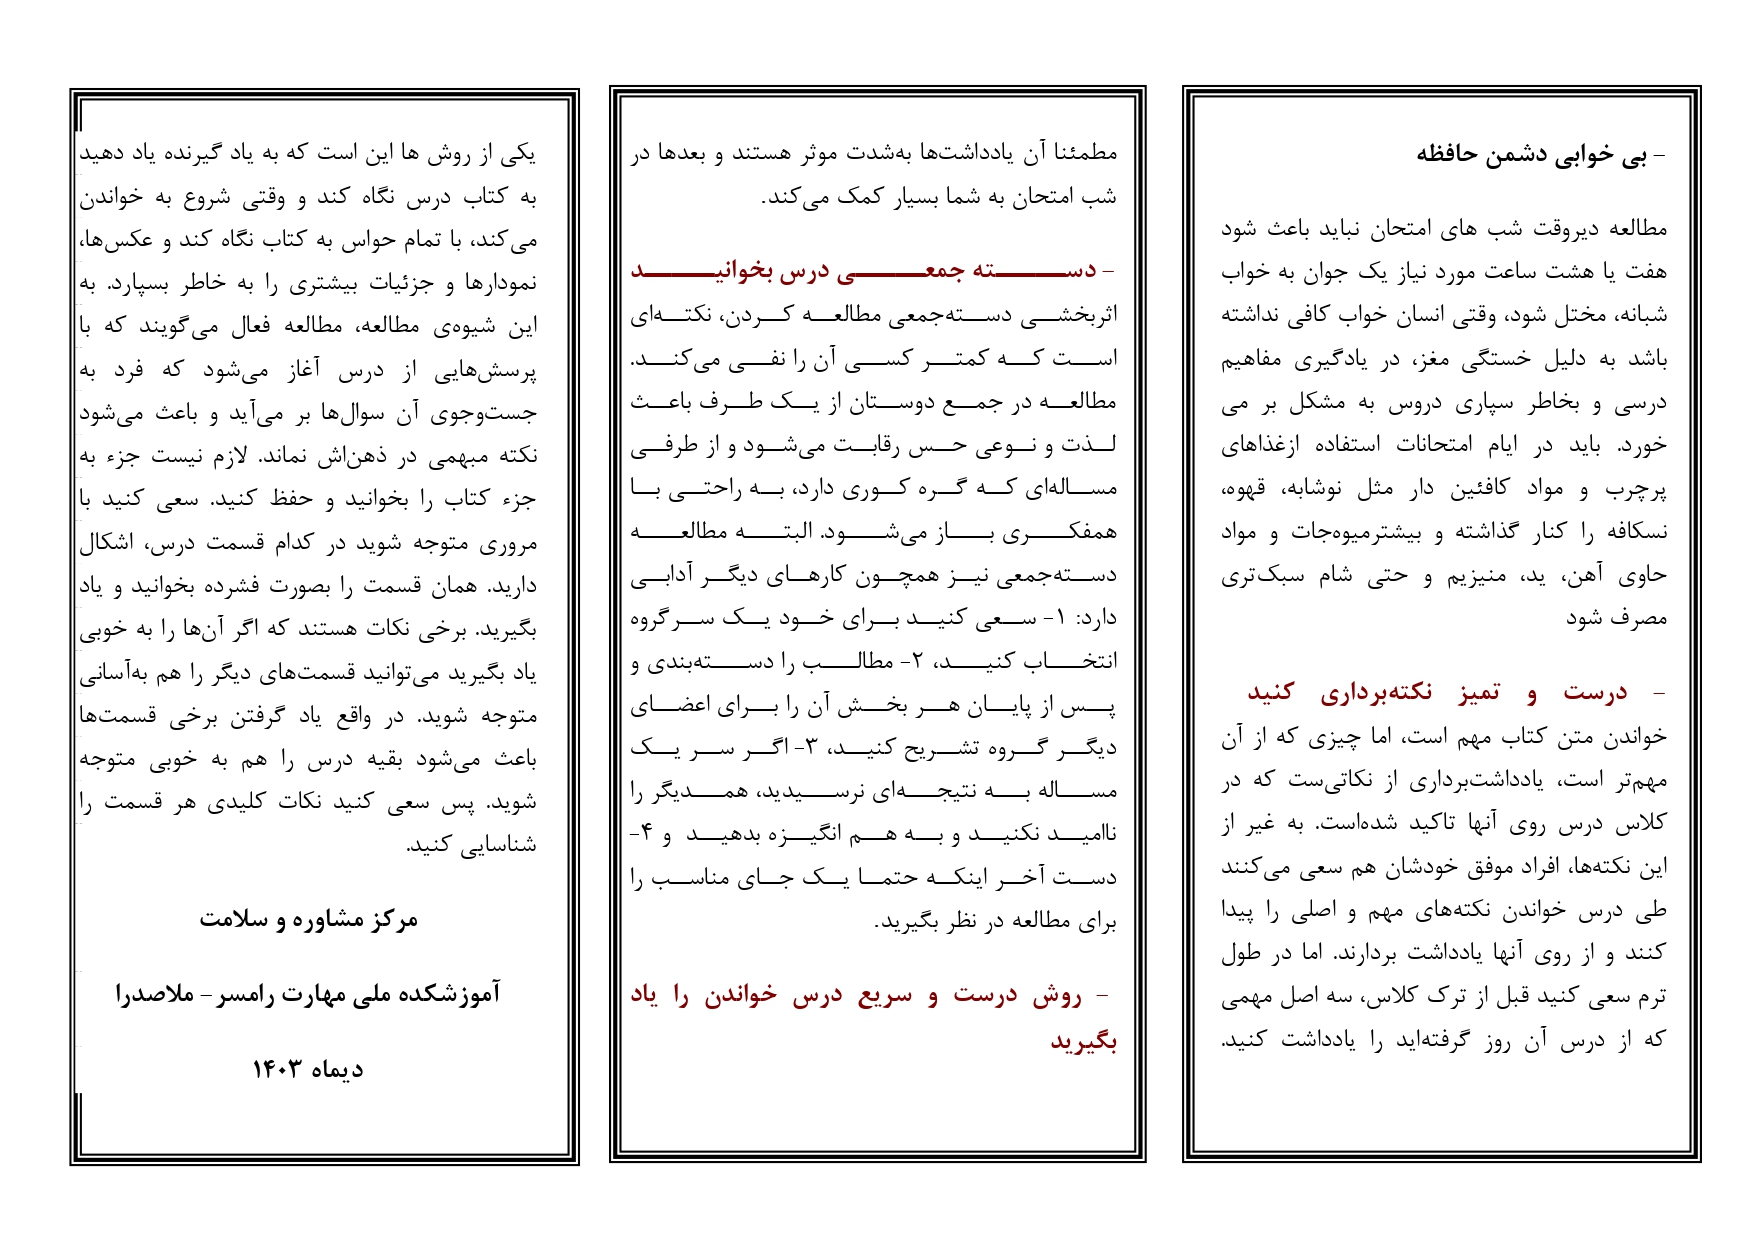 - بی خوابی دشمن حافظه
مطالعه دیروقت شب های امتحان نباید باعث شود
هفت یا هشت ساعت مورد نیاز یک جوان به خواب
شبانه، مختل شود، وقتی انسان خواب کافی نداشته
باشد به دلیل خستگی مغز، در یادگیری مفاهیم
درسی و بخاطر سپاری دروس به مشکل بر می
خورد. باید در ایام امتحانات استفاده ازغذاهای
پرچرب و مواد کافئین دار مثل نوشابه، قهوه،
نسکافه را کنار گذاشته و بیشترمیوه‌جات و مواد
حاوی آهن، ید، منیزیم و حتی شام سبک‌تری
مصرف شود
- درست و تمیز نکته‌برداری کنید
خواندن متن کتاب مهم است، اما چیزی که از آن
مهم‌تر است، یادداشت‌برداری از نکاتی‌ست که در
کلاس درس روی آنها تاکید شده‌است. به غیر از
این نکته‌ها، افراد موفق خودشان هم سعی می‌کنند
طی درس خواندن نکته‌های مهم و اصلی را پیدا
کنند و از روی آنها یادداشت بردارند. اما در طول
ترم سعی کنید قبل از ترک کلاس، سه اصل مهمی
که از درس آن روز گرفته‌اید را یادداشت کنید.
مطمئنا آن یادداشت‌ها به‌شدت موثر هستند و بعدها در
شب امتحان به شما بسیار کمک می‌کند.
- دسته جمعی درس بخوانید
اثربخشی دسته‌جمعی مطالعه کردن، نکته‌ای
است که کمتر کسی آن را نفی می‌کند.
مطالعه در جمع دوستان از یک طرف باعث
لذت و نوعی حس رقابت می‌شود و از طرفی
مساله‌ای که گره کوری دارد، به راحتی با
همفکری باز می‌شود. البته مطالعه
دسته‌جمعی نیز همچون کارهای دیگر آدابی
دارد: ۱- سعی کنید برای خود یک سرگروه
انتخاب کنید، ۲- مطالب را دسته‌بندی و
پس از پایان هر بخش آن را برای اعضای
دیگر گروه تشریح کنید، ۳- اگر سر یک
مساله به نتیجه‌ای نرسیدید، همدیگر را
ناامید نکنید و به هم انگیزه بدهید و ۴-
دست آخر اینکه حتما یک جای مناسب را
برای مطالعه در نظر بگیرید.
- روش درست و سریع درس خواندن را یاد
بگیرید
یکی از روش ها این است که به یاد گیرنده یاد دهید
به کتاب درس نگاه کند و وقتی شروع به خواندن
می‌کند، با تمام حواس به کتاب نگاه کند و عکس‌ها،
نمودارها و جزئیات بیشتری را به خاطر بسپارد. به
این شیوه‌ی مطالعه، مطالعه فعال می‌گویند که با
پرسش‌هایی از درس آغاز می‌شود که فرد به
جست‌وجوی آن سوال‌ها بر می‌آید و باعث می‌شود
نکته مبهمی در ذهن‌اش نماند. لازم نیست جزء به
جزء کتاب را بخوانید و حفظ کنید. سعی کنید با
مروری متوجه شوید در کدام قسمت درس، اشکال
دارید. همان قسمت را بصورت فشرده بخوانید و یاد
بگیرید. برخی نکات هستند که اگر آن‌ها را به خوبی
یاد بگیرید می‌توانید قسمت‌های دیگر را هم به‌آسانی
متوجه شوید. در واقع یاد گرفتن برخی قسمت‌ها
باعث می‌شود بقیه درس را هم به خوبی متوجه
شوید. پس سعی کنید نکات کلیدی هر قسمت را
شناسایی کنید.
مرکز مشاوره و سلامت
آموزشکده ملی مهارت رامسر- ملاصدرا
دیماه ۱۴۰۳